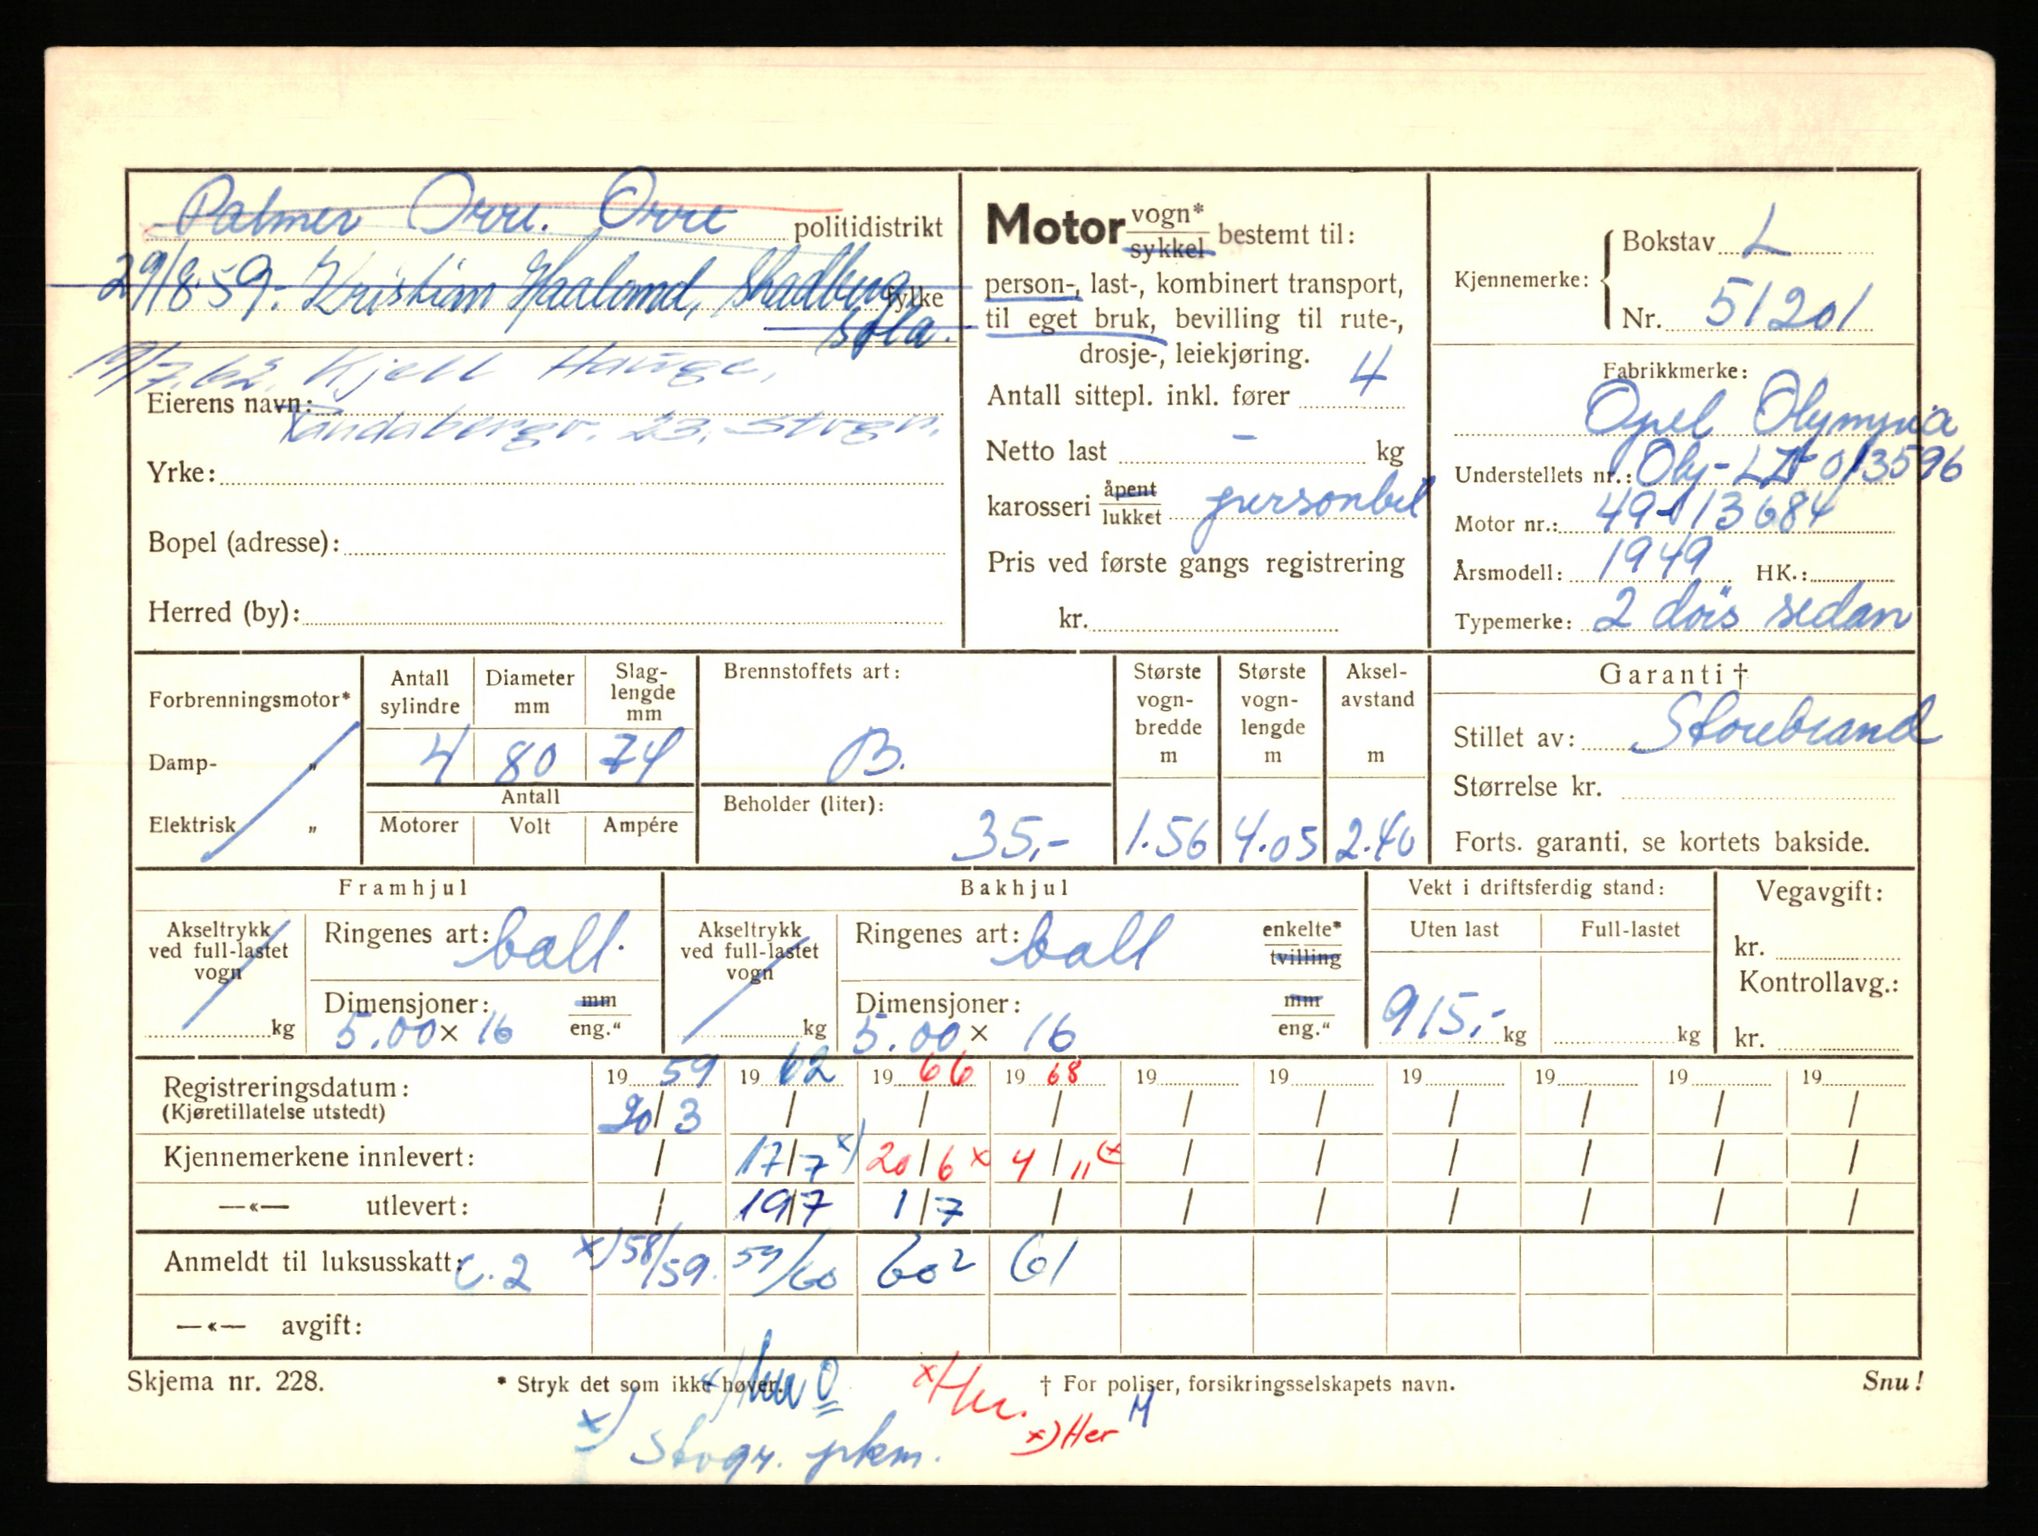 Palmer Orre. Orre politidistrikt
29/8.59. Kristian Haaland, Skadberg fylke
Sola.
19/7.62. Kjell Hauge,
Eierens navn: Randabergv. 23. Stvgr.
Yrke:
Bopel (adresse):
Herred (by):
Motor vogn* sykkel bestemt til:
person-, last-, kombinert transport,
til eget bruk, bevilling til rute-,
drosje-, leiekjøring.
Antall sittepl. inkl. fører 4
Netto last - kg
karosseri åpent lukket personbil
Pris ved første gangs registrering
kr.
Kjennemerke:
Bokstav L
Nr. 51201
Fabrikkmerke:
Opel Olympia
Understellets nr.: Oly-LZ-013596
Motor nr.: 49-13684
Årsmodell: 1949 HK.:
Typemerke: 2 dörs sedan
Forbrenningsmotor*
Damp- „
Elektrisk „
Antall sylindre
Diameter mm
Slag-lengde mm
4 80 74
Antall
Motorer Volt Ampére
Brennstoffets art:
B.
Beholder (liter):
35,-
Største vogn-bredde m
1.56
Største vogn-lengde m
4.05
Aksel-avstand m
2.40
Garanti †
Stillet av: Storebrand
Størrelse kr.
Forts. garanti, se kortets bakside.
Framhjul
Akseltrykk
ved full-lastet
vogn
kg
Ringenes art: ball.
Dimensjoner: mm
5.00 x 16 eng."
Bakhjul
Akseltrykk
ved full-lastet
vogn
kg
Ringenes art: ball enkelte* tvilling
Dimensjoner: mm
5.00 x 16 eng."
Vekt i driftsferdig stand:
Uten last Full-lastet
915,- kg kg
Vegavgift:
kr.
Kontrollavg.:
kr.
Registreringsdatum: 19 59 19 62 19 66 19 68 19 19 19 19 19 19
(Kjøretillatelse utstedt) 20/3 / / / / / / / / /
Kjennemerkene innlevert: / 17/7 x) 20/6 x 4/11 (x / / / / / /
—«— utlevert: / 19/7 1/7 / / / / / / /
Anmeldt til luksusskatt: C. 2 x) 58/59. 59/60 60 2 61
—«— avgift:
Skjema nr. 228. * Stryk det som ikke høver. † For poliser, forsikringsselskapets navn. Snu!
x) her O x) Her. x) Her M
x) Stvgr. pkm.